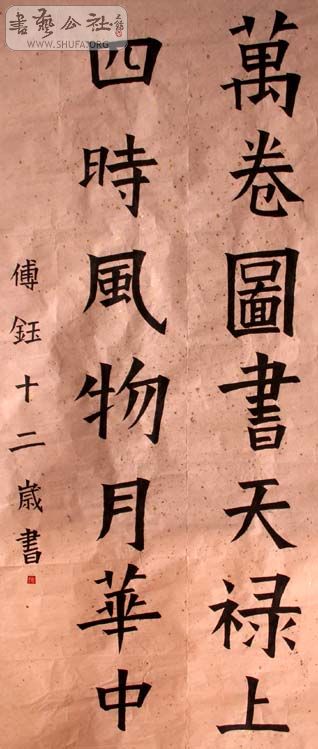 萬卷圖書天禄上
四時風物月華中
傅鈺十二歲書
書藝公社
WWW.SHUFA.ORG